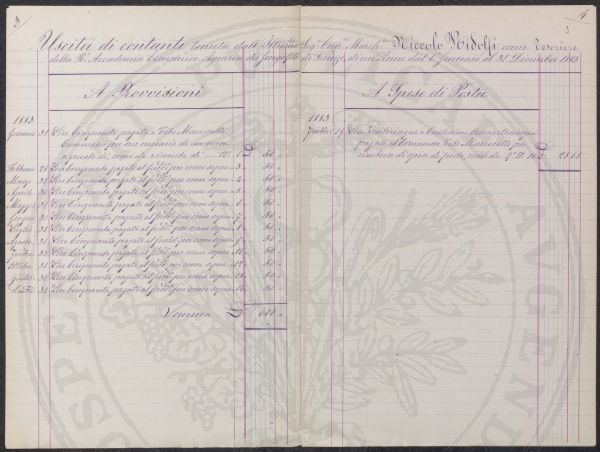 3
4
3
Uscita di contanti tenuta dall' Illmo Sig. Com. March. Niccolo Ridolfi come Tesoriere
della R. Accademia Economico Agraria dei Georgofili di Firenze, di un Anno dal 1° Gennaio al 31 Dicembre 1883
A Provvisioni
1883
Gennaio 31 Lire Cinquanta pagate a Tito Marucelli
Commesso per suo onorario di un mese
50
Febbraio 28 Lire Cinquanta pagate al sudd. per come sopra 50
Marzo 31 Lire Cinquanta pagate al sudd. per come sopra 50
Aprile Lire Cinquanta pagate al sudd. per come sopra 50
Maggio 31 Lire Cinquanta pagate al sudd. per come sopra 50
Giugno Lire Cinquanta pagate al sudd. per come sopra 50
Luglio 31 Lire Cinquanta pagate al sudd. per come sopra 50
Agosto 31 Lire Cinquanta pagate al sudd. per come sopra 50
Lire Cinquanta pagate al sudd. per come sopra 50
Ottobre 31 Lire Cinquanta pagate al sudd. per come sopra 50
Lire Cinquanta pagate al sudd. per come sopra 50
31 Lire Cinquanta pagate al sudd. per come sopra 50
Somma £ 600
A Spese di Posta
1883
Lire Venticinque e Centesimi sessantacinque
pagate al Commesso Tito Marucelli per
rimborso di spese di posta, come da 25 65
PROSPE
AVGENDAE